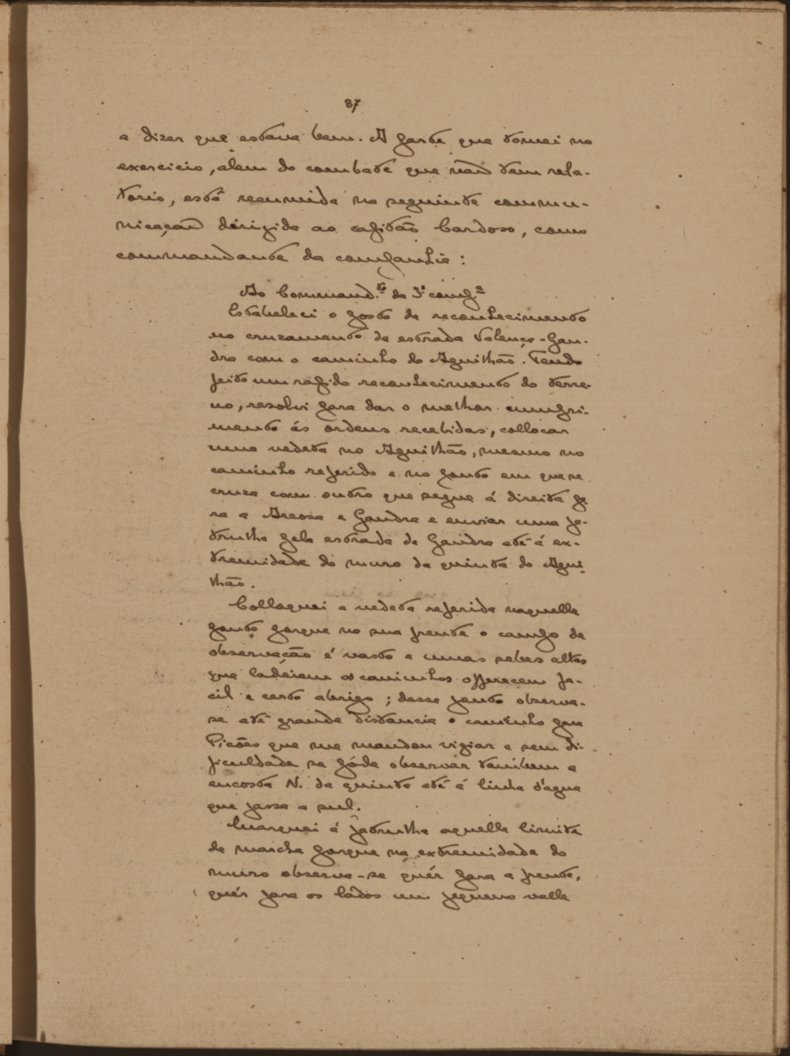 87
a dizer que estava bem. A parte que tomei no
exercicio, alem do combate que não tem rela-
torio, está resumida na seguinte commu-
nicação dirigida ao capitão Cardoso, como
commandante da companhia:
Ao Command.te da 3ª comp.ª
Estabeleci o posto de reconhecimento
no cruzamento da estrada Valença-Gan-
dra com o caminho do Aguilhão. Tendo
feito um rapido reconhecimento do terre-
no, resolvi para dar o melhor cumpri-
mento ás ordens recebidas, collocar
uma vedeta no Aguilhão, mesmo no
caminho referido e no ponto em que se
cruza com outro que segue á direita pa-
ra a Areosa e Gandra e enviar uma pa-
trulha pela estrada de Gandra até á ex-
tremidade do muro da quinta do Agui-
lhão.
Colloquei a vedeta referida naquelle
ponto porque na sua frente o campo de
observação é vasto e umas sebes altas
que ladeiam os caminhos offerecem fa-
cil e certo abrigo; desse ponto observa-
se até grande distancia o caminho para
Picões que me mandou vigiar e sem di-
ficuldade se póde observar tambem a
encosta N. da quinta até á linha d'agua
que passa a sul.
Marquei á patrulha aquelle limite
de marcha porque na extremidade do
muro observa-se quér para a frente,
quér para os lados um pequeno valle